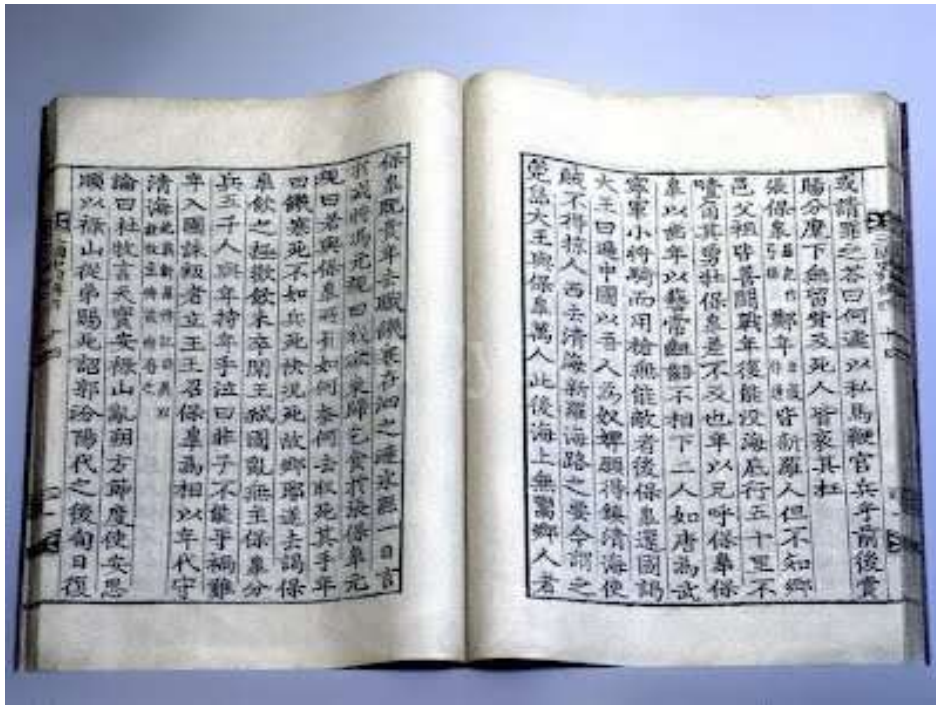 或請罪之答曰何遽以私馬鞭官兵乎前後賞
賜分麾下無留貲及死人皆哀其枉
張保皐羅紀作弓福鄭年年或作連皆新羅人但不知鄉
邑父祖皆善鬪戰年復能没海底行五十里不
噎角其勇壯保皐差不及也年以兄呼保皐保
皐以齒年以藝常齟齬不相下二人如唐爲武
寧軍小將騎而用槍無能敵者後保皐還國謁
大王曰遍中國以吾人爲奴婢願得鎭清海使
賊不得掠人西去清海新羅海路之要今謂之
莞島大王與保皐萬人此後海上無鬻鄉人者
保皐旣貴年去職饑寒在泗之漣水縣一日言
於戍將馮元規曰我欲東歸乞食於張保皐元
規曰若與保皐所負如何奈何去取死其手年
曰饑寒死不如兵死快況死故鄉耶遂去謁保
皐飮之極歡飮未卒聞王弑國亂無主保皐分
兵五千人與年持年手泣曰非子不能平禍難
年入國誅叛者立王王召保皐爲相以年代守
清海此與新羅傳記頗異以杜牧立傳故兩存之
論曰杜牧言天寶安祿山亂朔方節度使安思
順以祿山從弟賜死詔郭汾陽代之後旬日復